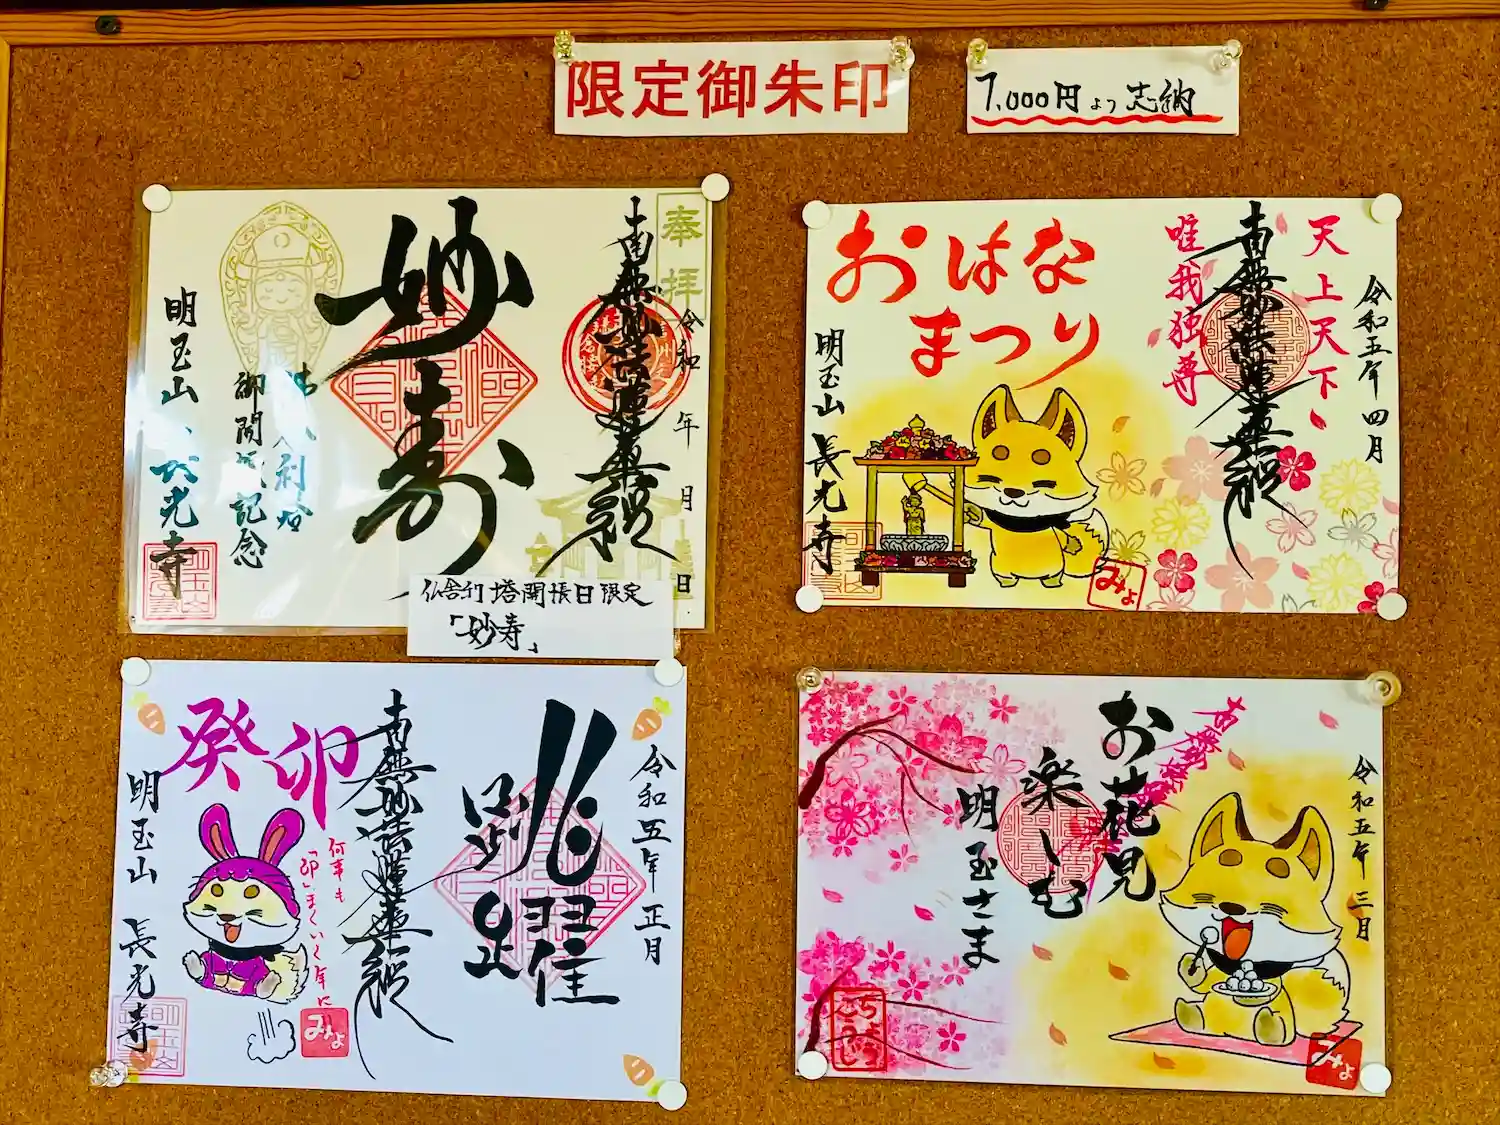 限定御朱印
1,000円より志納
奉拝
南無妙法蓮華経
令和 年 月 日
妙寿
御開帳記念
明玉山 長光寺
仏舎利塔開帳日限定
「妙寿」
おはな
まつり
天上天下
唯我独尊
南無妙法蓮華経
令和五年四月
明玉山 長光寺
みょ
令和五年正月
跳躍
南無妙法蓮華経
癸卯
何事も
「卯」まくいく年に
明玉山 長光寺
みょ
令和五年三月
お花見
楽しむ
明玉さま
みょ